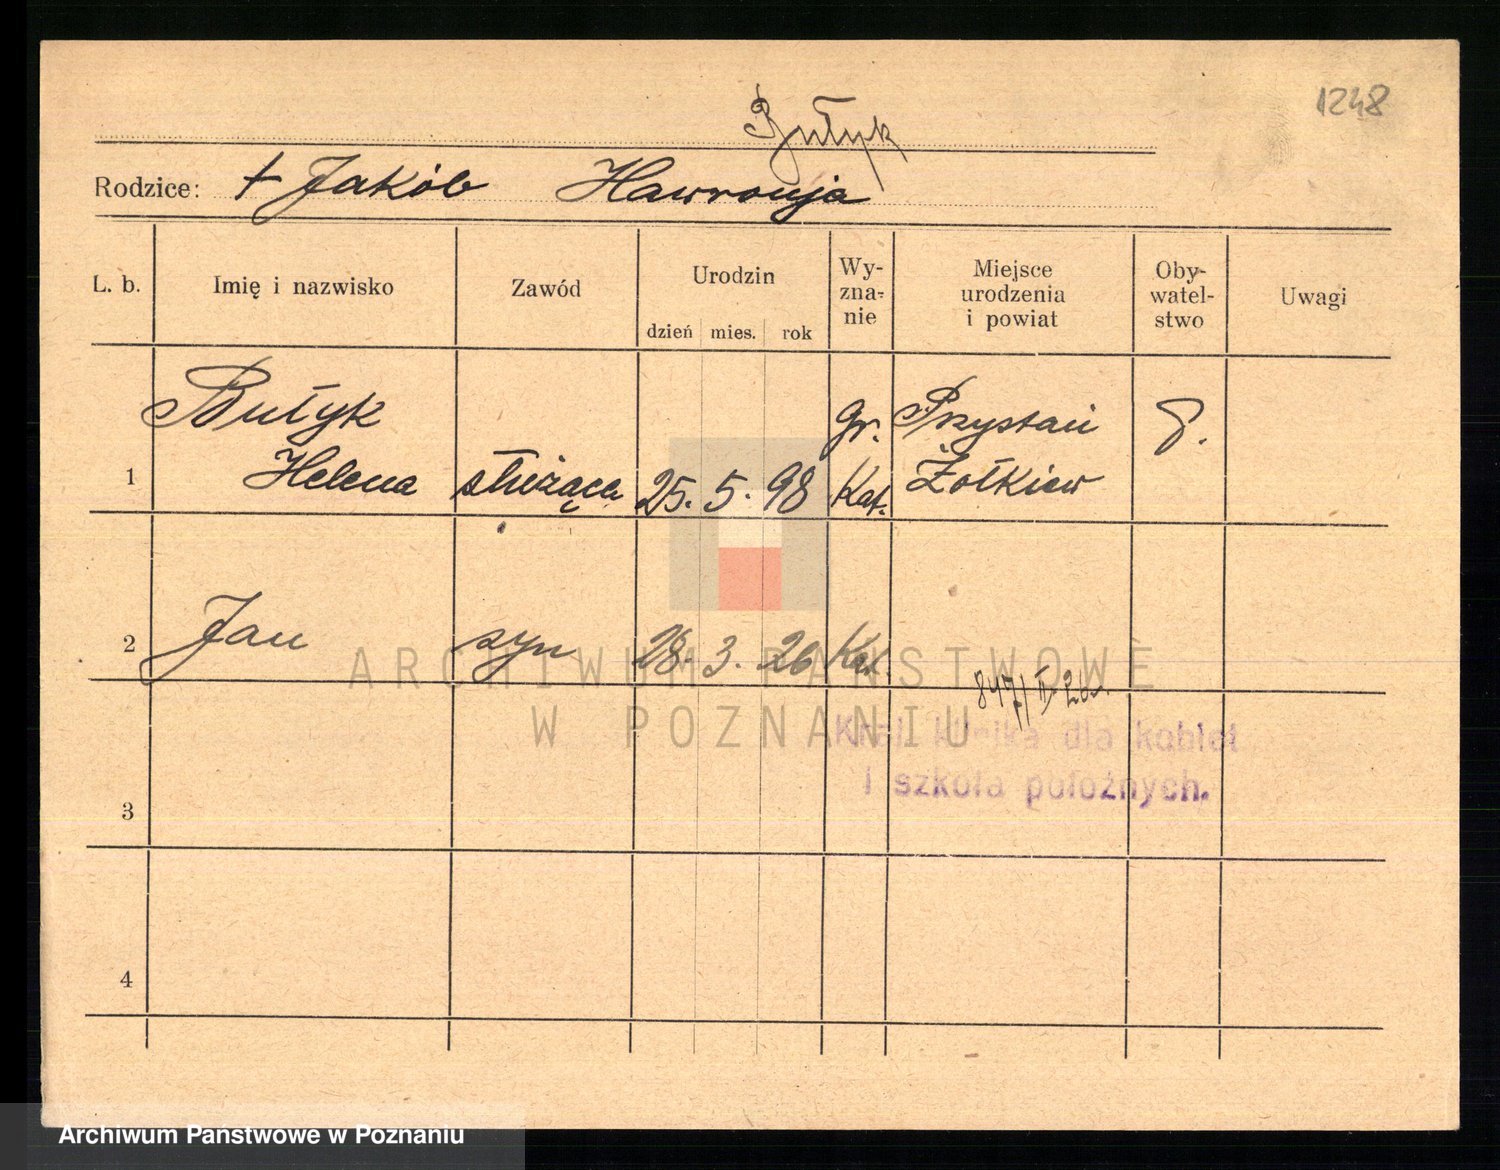 1248
Bułyk
Rodzice: + Jakób Hawronja
L. b. Imię i nazwisko Zawód Urodzin dzień mies. rok Wy-zna-nie Miejsce urodzenia i powiat Oby-watel-stwo Uwagi
Bułyk gr. Przystań P.
1 Helena służąca 25. 5. 98 Kat. Żołkiew
2 Jan syn 28. 3. 26 Kat.
847/II 26
Kraj. klinika dla kobiet
i szkoła położnych.
3
4
ARCHIWUM PAŃSTWOWE
W POZNANIU
Archiwum Państwowe w Poznaniu